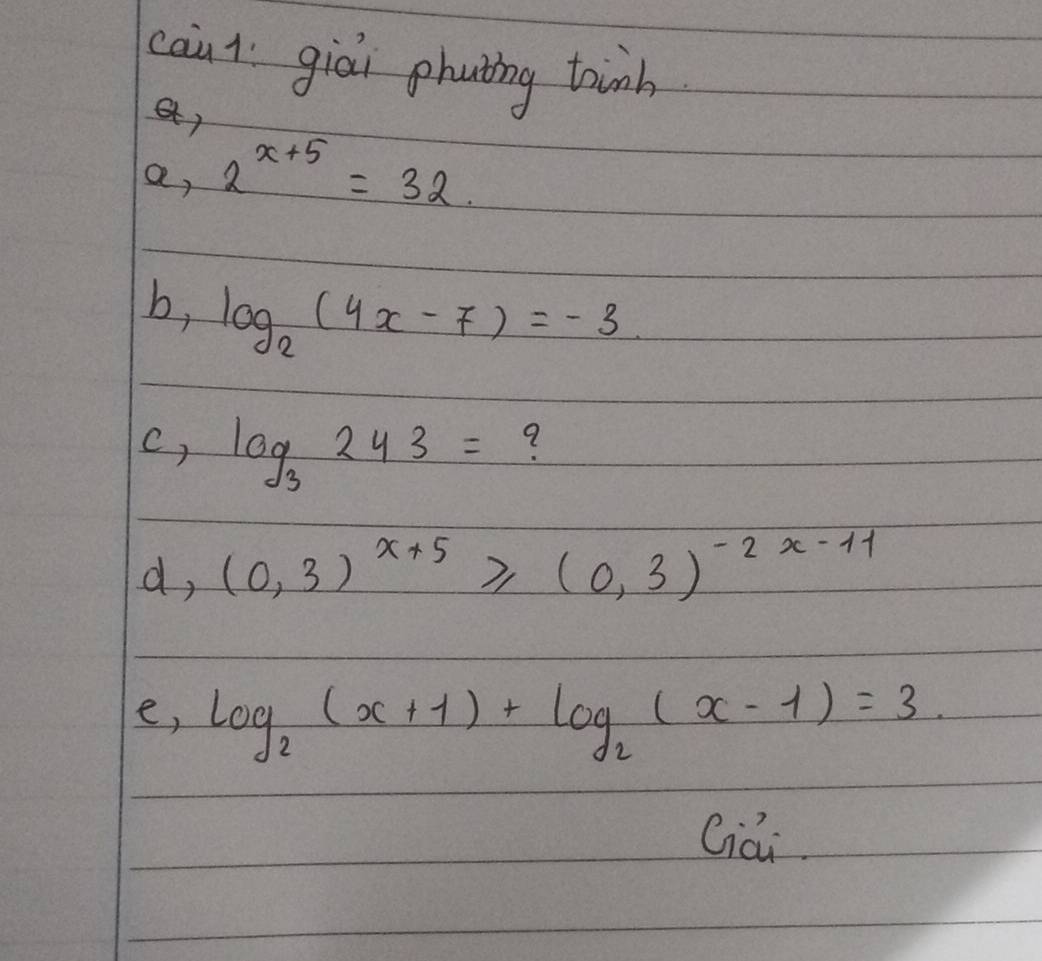 Câu 1: giải phương trình.
a,
a, 2^{x+5} = 32.
b, log_2 (4x - 7) = - 3.
c, log_3 243 = ?
d, (0,3)^{x+5} ⩾ (0,3)^{-2x-11}
e, Log_2 (x+1) + Log_2 (x - 1) = 3.
Giải.